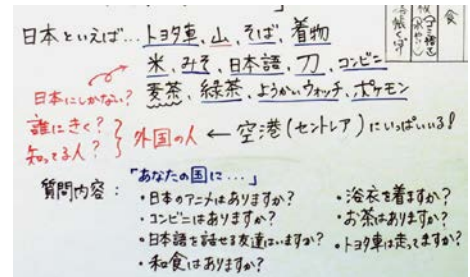 日本といえば… トヨタ車、山、そば、着物
米、みそ、日本語、刀、コンビニ
麦茶、緑茶、ようかいウォッチ、ポケモン
日本にしかない?
誰にきく?
知ってる人?
外国の人 ← 空港(セントレア)にいっぱいいる!
質問内容:「あなたの国に…」
・日本のアニメはありますか?
・コンビニはありますか?
・日本語を話せる友達はいますか?
・和食はありますか?
・浴衣を着ますか?
・お茶はありますか?
・トヨタ車は走ってますか?
食